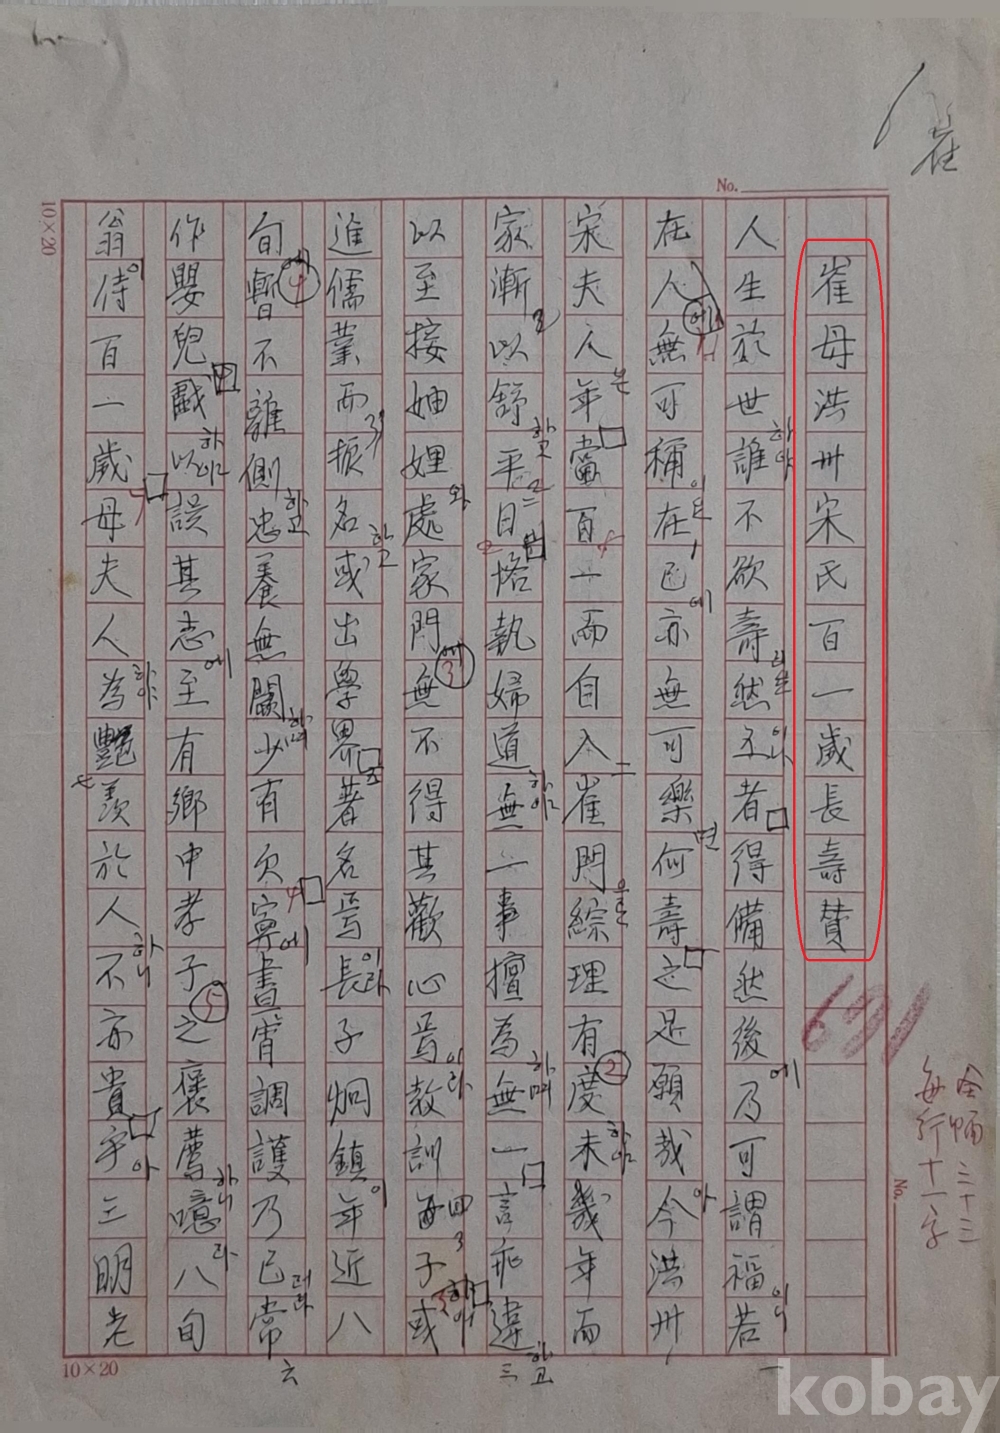 崔
No.
10×20
崔母洪州宋氏百一歲長壽贊
人生於世誰不欲壽然五者得備然後乃可謂福若
在人無可稱在己亦無可樂何壽之足願哉今洪州
宋夫人年當百一而自入崔門綜理有度未幾年而
家漸以舒平日恪執婦道無一事擅為無一言乖違
以至接妯娌處家門無不得其歡心焉教訓每子或
進儒業而振名或出學界著名焉長子炯鎮年近八
旬暫不離側忠養無闕少有欠寧晝宵調護乃已常
作嬰兒戲以誤其志至有鄉中孝子之褒薦噫八旬
翁侍百一歲母夫人為艷羨於人不亦貴乎三明老
691
全幅三十三
每行十一字
No.
10×20
kobay